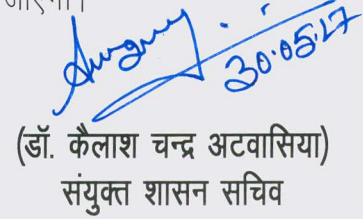 जाएगा।
30.05.17
(डॉ. कैलाश चन्द्र अटवासिया)
संयुक्त शासन सचिव